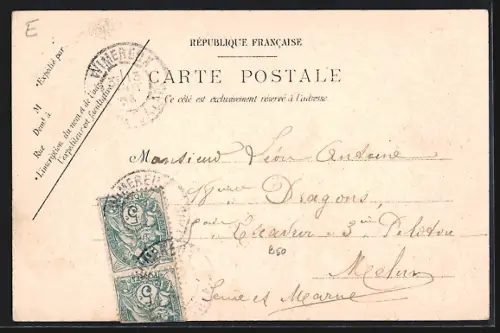 E
RÉPUBLIQUE FRANÇAISE
CARTE POSTALE
Ce côté est exclusivement réservé à l'adresse
Expédié par
M
Demt à
Rue
L'inscription du nom et de l'adresse de
l'expéditeur est facultative
WIMEREUX
Monsieur Léon Antoine
Dragons,
3e Peloton
B50
Melun
Seine et Marne
WIMEREUX
5
5